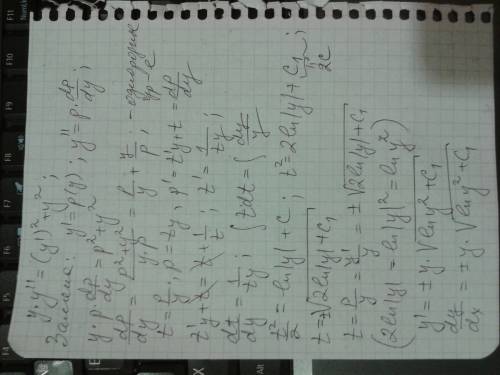 y·y'' = (y')² + y²;
Замена: y' = p(y); y'' = p·dp/dy;
y·p·dp/dy = p² + y²
dp/dy = (p² + y²)/(y·p) = p/y + y/p; - однородное ур
t = p/y; p = ty; p' = t'y + t = dp/dy
t'y + t = t + 1/t; t' = 1/(ty);
dt/dy = 1/(ty); ∫tdt = ∫dy/y
t²/2 = ln|y| + C; t² = 2ln|y| + C₁; 2C
t = ±√(2ln|y| + C₁)
t = p/y = y'/y = ±√(2ln|y| + C₁)
(2ln|y| = ln|y|² = ln y²)
y' = ±y·√(ln y² + C₁)
dy/dx = ±y·√(ln y² + C₁)
F4
F5
F6
F7
F8
F9
F10
F11